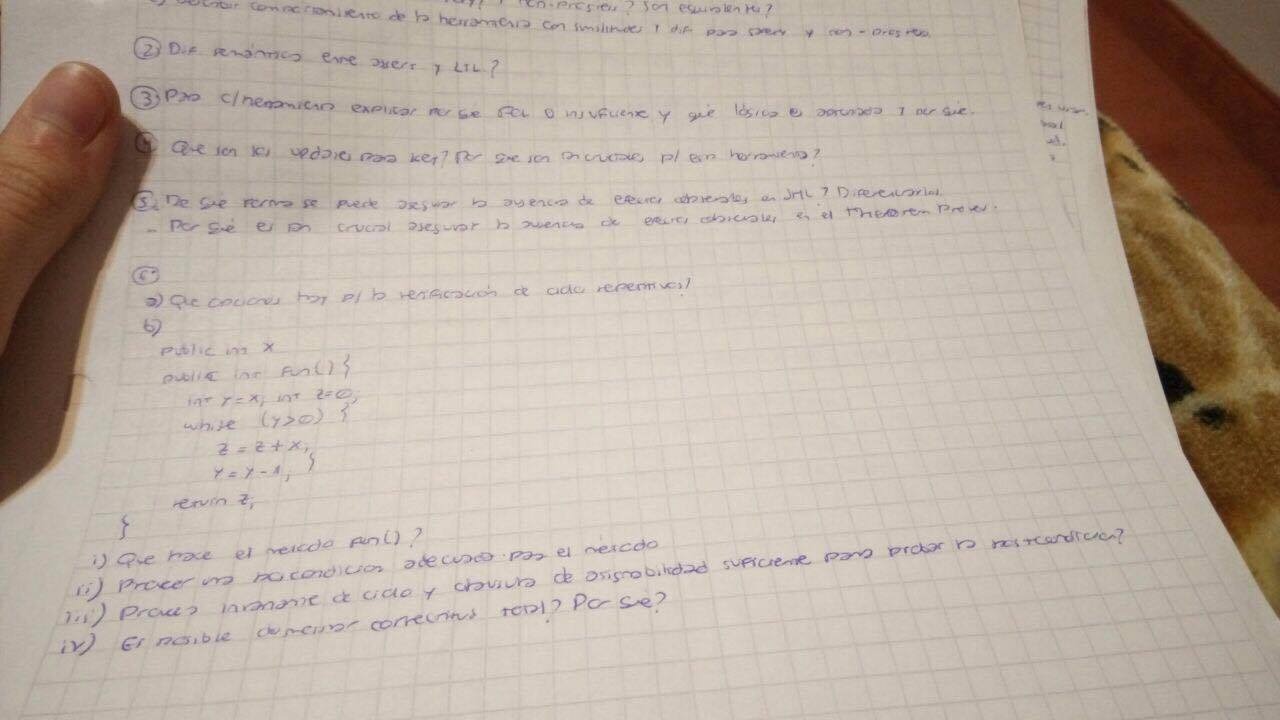 non-progress? Son equivalentes?
comportamiento de la herramienta con similitudes y dif para
② Dif semántica entre assert y LTL?
③ Para c/herramienta explicar por qué FOL o insuficiente y qué lógica es apropiada y por qué.
④ Que son los updates para key? Por que son tan cruciales p/ esta herramienta?
⑤ De qué forma se puede asegurar la ausencia de efectos colaterales en JML? Diferenciarlos.
- Por qué es tan crucial asegurar la ausencia de efectos colaterales en el Theorem Prover.
⑥
a) Que opciones hay p/ la verificación de ciclos repetitivos?
b)
public int x
public int fun() {
int y=x; int z=0;
while (y>0) {
z = z + x;
y = y - 1; }
return z;
}
i) Que hace el método fun() ?
ii) Proveer una poscondicion adecuada para el método
iii) Provea invariante de ciclo y clausura de asignabilidad suficiente para probar la postcondicion?
iv) Es posible demostrar correctitud total? Por que?